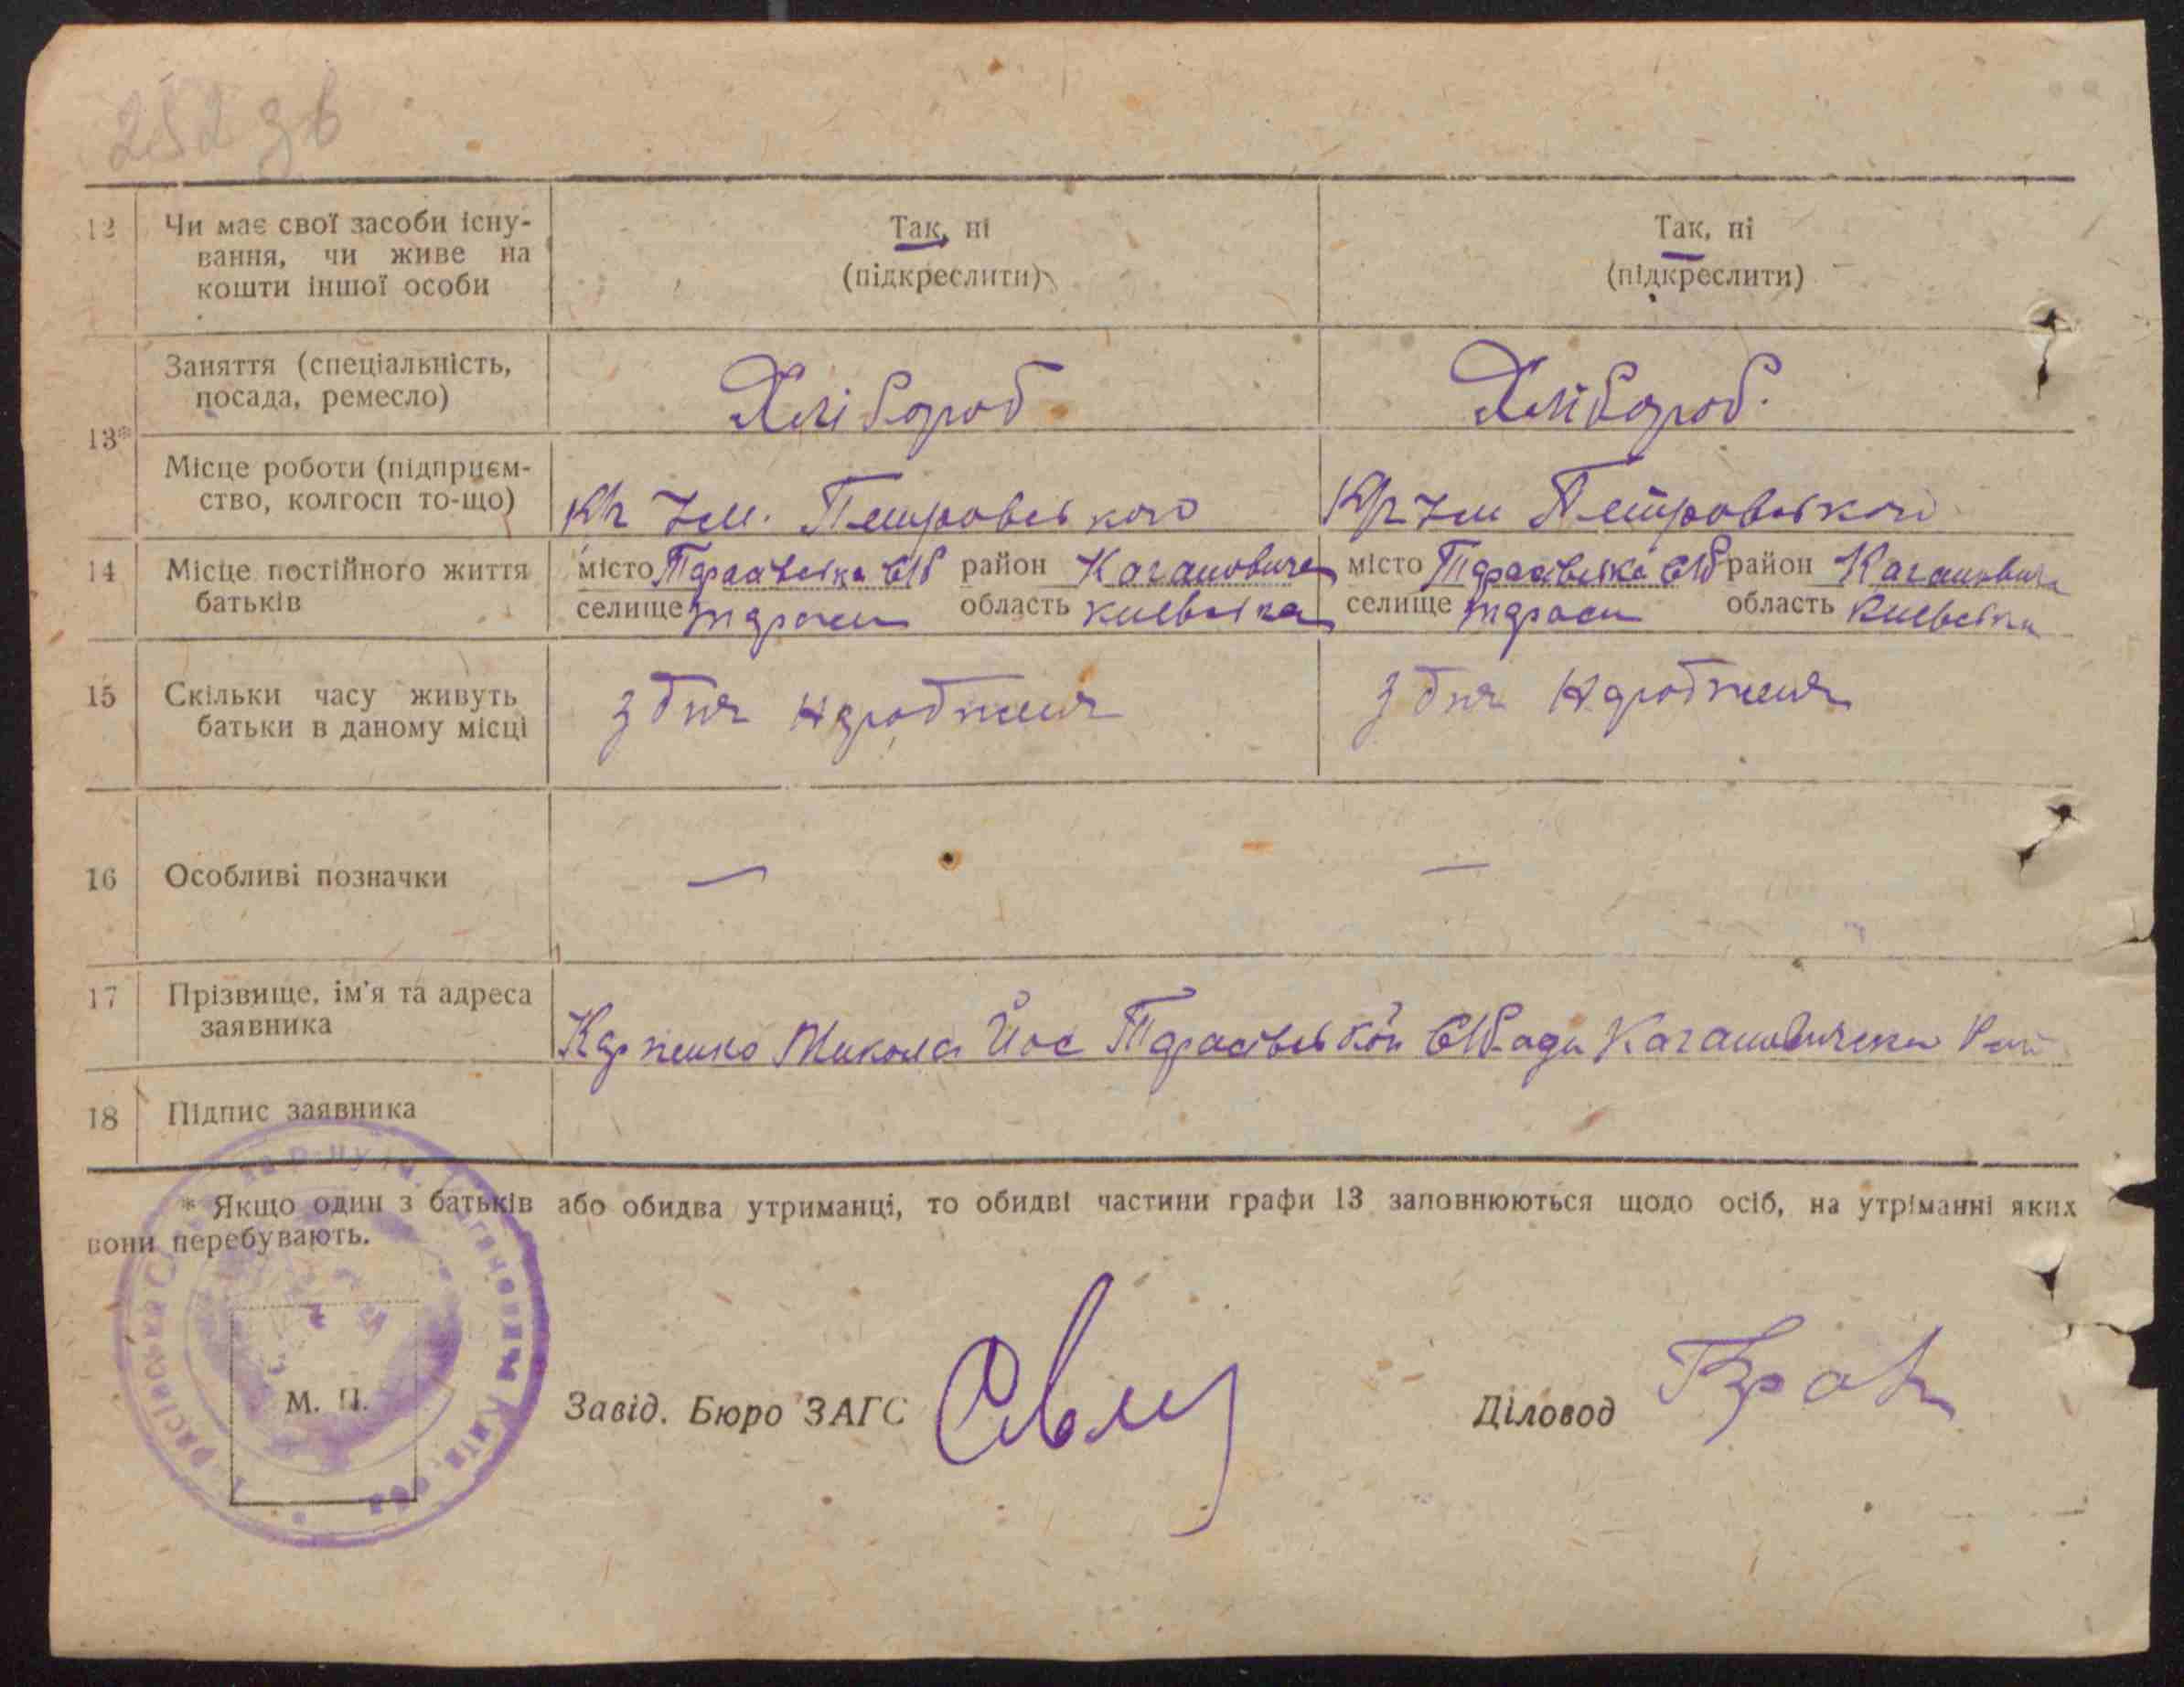 252 зв
12 Чи має свої засоби існу-
вання, чи живе на
кошти іншої особи
Так, ні
(підкреслити)
Так, ні
(підкреслити)
13*
Заняття (спеціальність,
посада, ремесло)
Хлібороб
Хлібороб.
Місце роботи (підприєм-
ство, колгосп то-що)
Кг Ім. Петровського
Кг Ім Петровського
14 Місце постійного життя
батьків
місто Тарасівська С/б район Кагановича
селище тараси область київська
місто Тарасівська С/б район Кагановича
селище тараси область Київська
15 Скільки часу живуть
батьки в даному місці
з дня народження
з дня народження
16 Особливі позначки
—
—
17 Прізвище, ім'я та адреса
заявника
Карпенко Микола Йос Тарасівської С/Ради Кагановичска Рай
18 Підпис заявника
* Якщо один з батьків або обидва утриманці, то обидві частини графи 13 заповнюються щодо осіб, на утріманні яких
вони перебувають.
М. П.
Завід. Бюро ЗАГС
Діловод